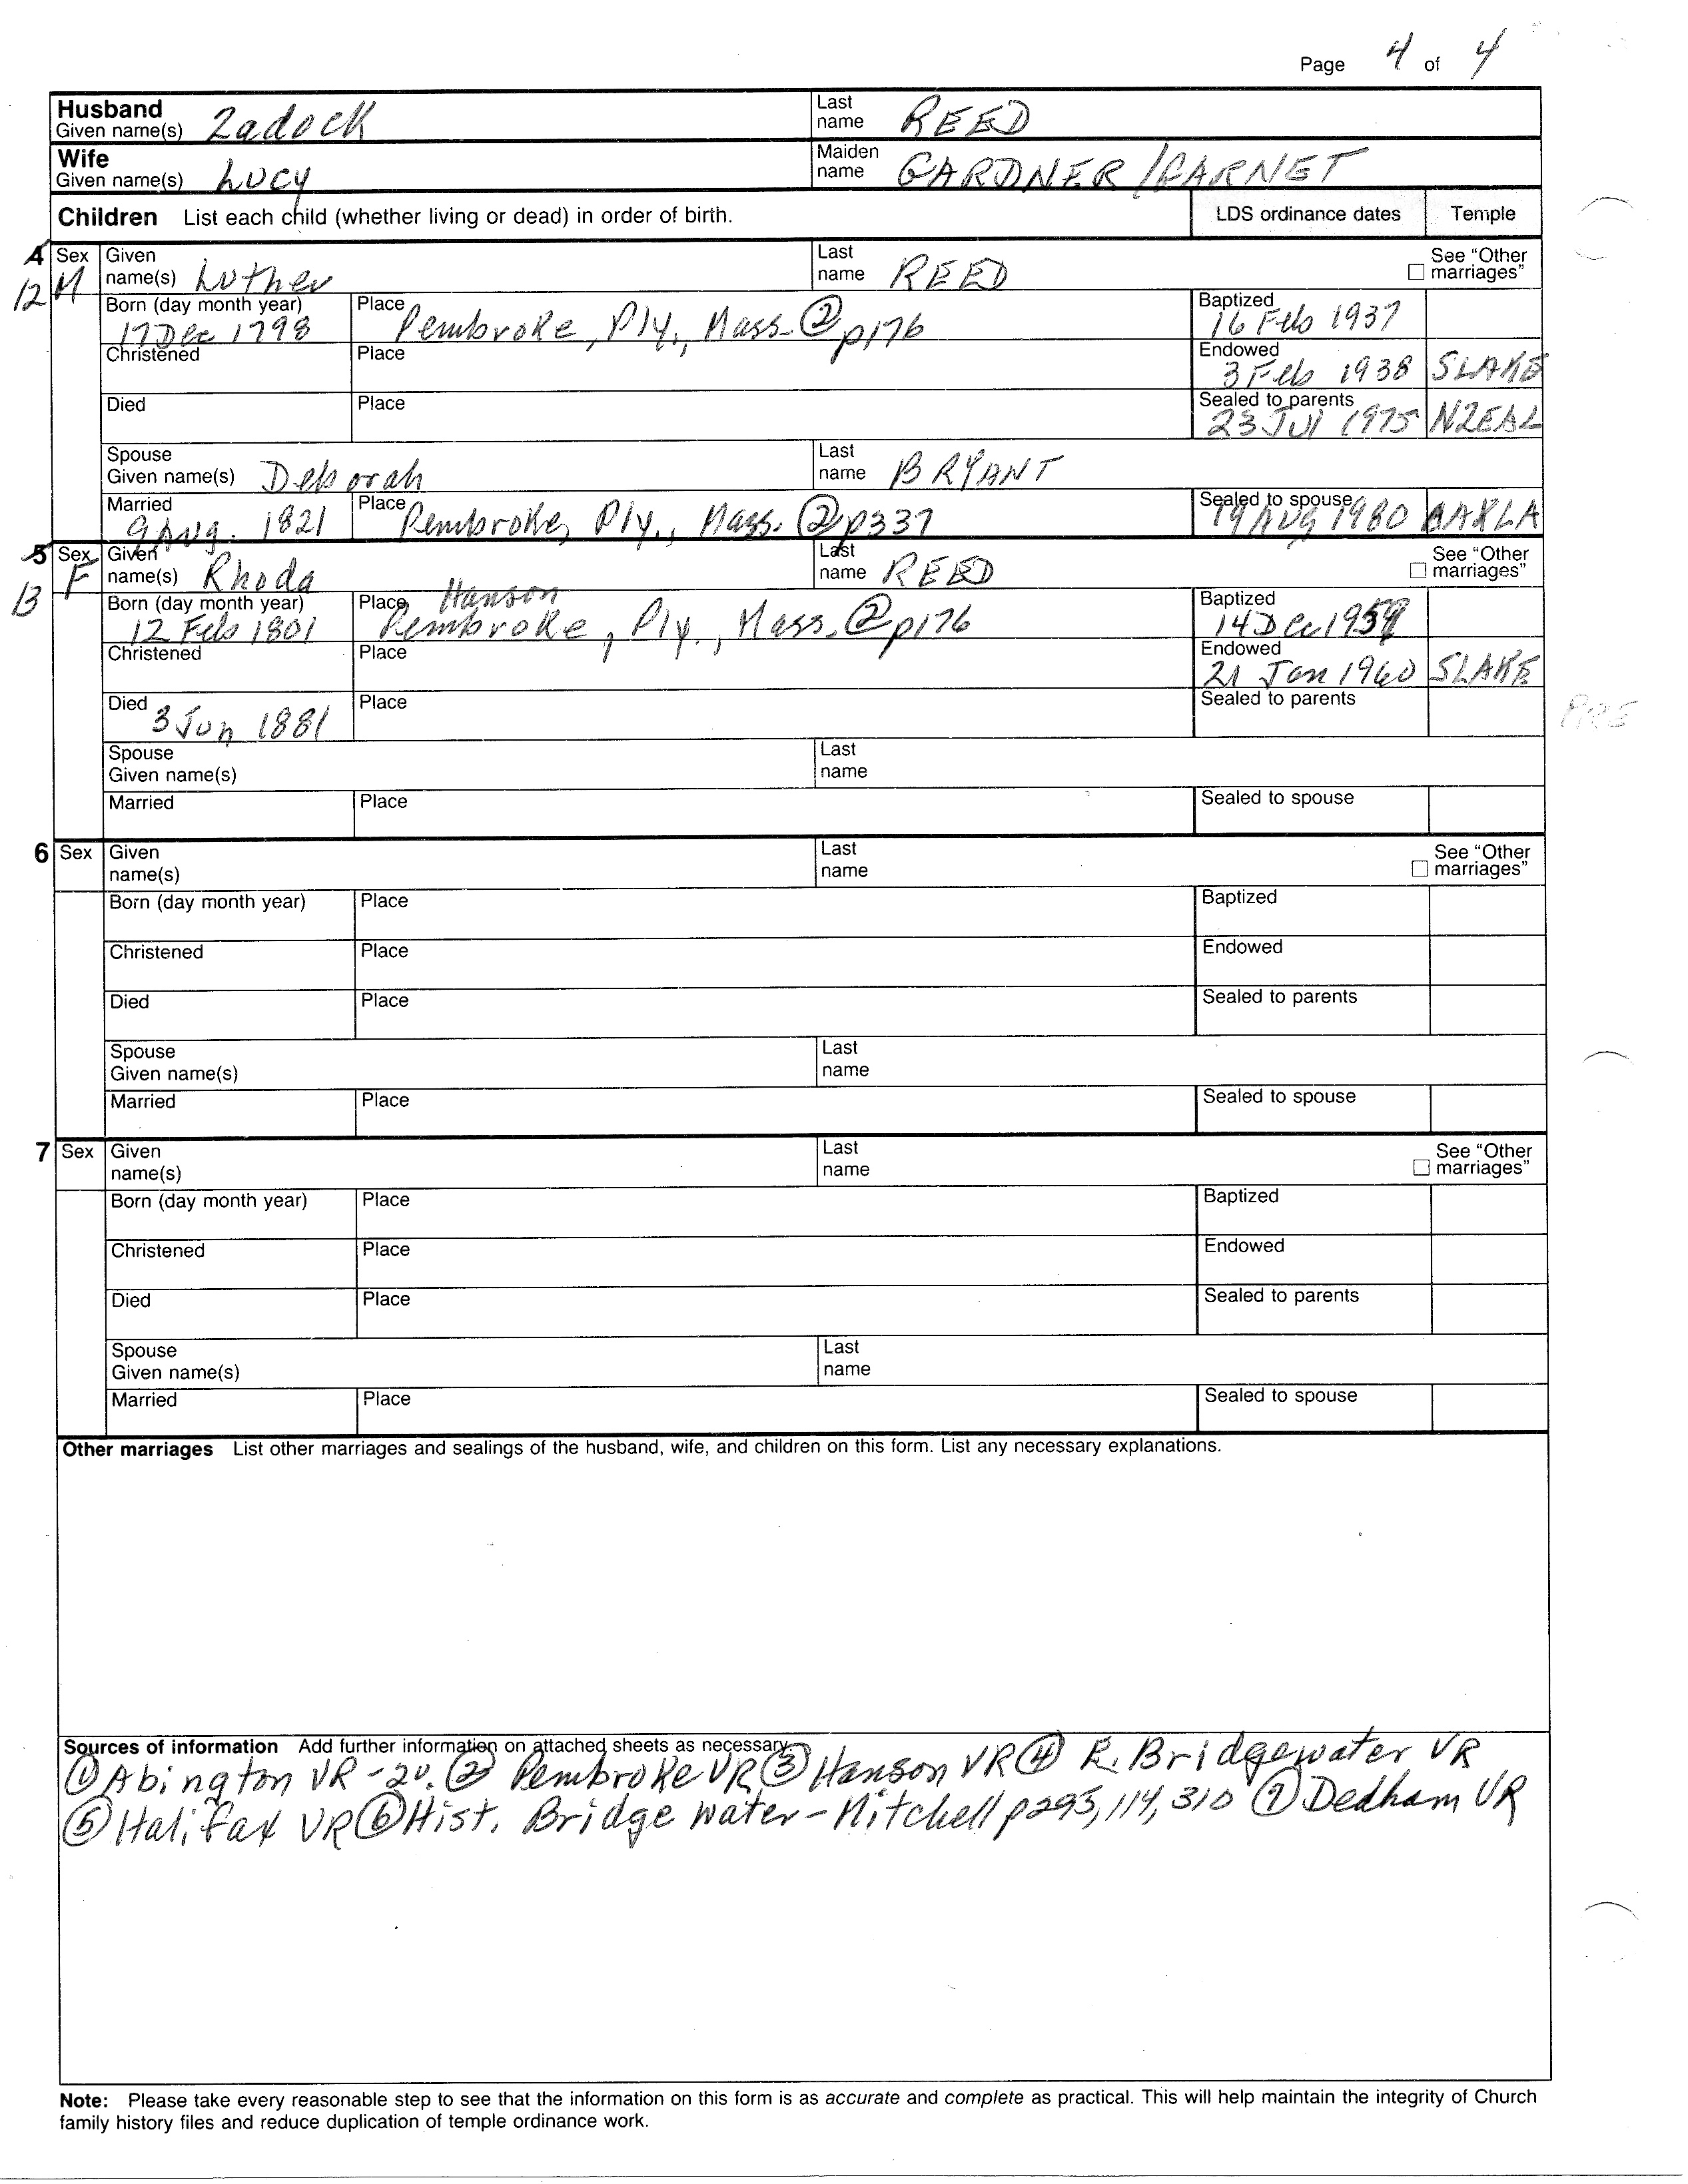 Page 4 of 4
Husband Given name(s) Zadock Last name REED
Wife Given name(s) Lucy Maiden name GARDNER/GARNET
Children List each child (whether living or dead) in order of birth. LDS ordinance dates Temple
4 12 Sex M Given name(s) Luther Last name REED See "Other marriages"
Born (day month year) 17 Dec 1798 Place Pembroke, Ply., Mass. ② p176 Baptized 16 Feb 1937
Christened Place Endowed 3 Feb 1938 SLAKE
Died Place Sealed to parents 23 Jul 1975 NZEAL
Spouse Given name(s) Deborah Last name BRYANT
Married 9 Aug. 1821 Place Pembroke, Ply., Mass. ② p337 Sealed to spouse 19 AUG 1980 OAKLA
5 13 Sex F Given name(s) Rhoda Last name REED See "Other marriages"
Born (day month year) 12 Feb 1801 Place Hanson Pembroke, Ply., Mass. ② p176 Baptized 14 Dec 1959
Christened Place Endowed 21 Jan 1960 SLAKE
Died 3 Jun 1881 Place Sealed to parents
Spouse Given name(s) Last name
Married Place Sealed to spouse
6 Sex Given name(s) Last name See "Other marriages"
Born (day month year) Place Baptized
Christened Place Endowed
Died Place Sealed to parents
Spouse Given name(s) Last name
Married Place Sealed to spouse
7 Sex Given name(s) Last name See "Other marriages"
Born (day month year) Place Baptized
Christened Place Endowed
Died Place Sealed to parents
Spouse Given name(s) Last name
Married Place Sealed to spouse
Other marriages List other marriages and sealings of the husband, wife, and children on this form. List any necessary explanations.
Sources of information Add further information on attached sheets as necessary.
① Abington VR - 2v. ② Pembroke VR ③ Hanson VR ④ E. Bridgewater VR
⑤ Halifax VR ⑥ Hist. Bridgewater - Mitchell p293, 114, 310 ⑦ Dedham VR
Note: Please take every reasonable step to see that the information on this form is as accurate and complete as practical. This will help maintain the integrity of Church
family history files and reduce duplication of temple ordinance work.